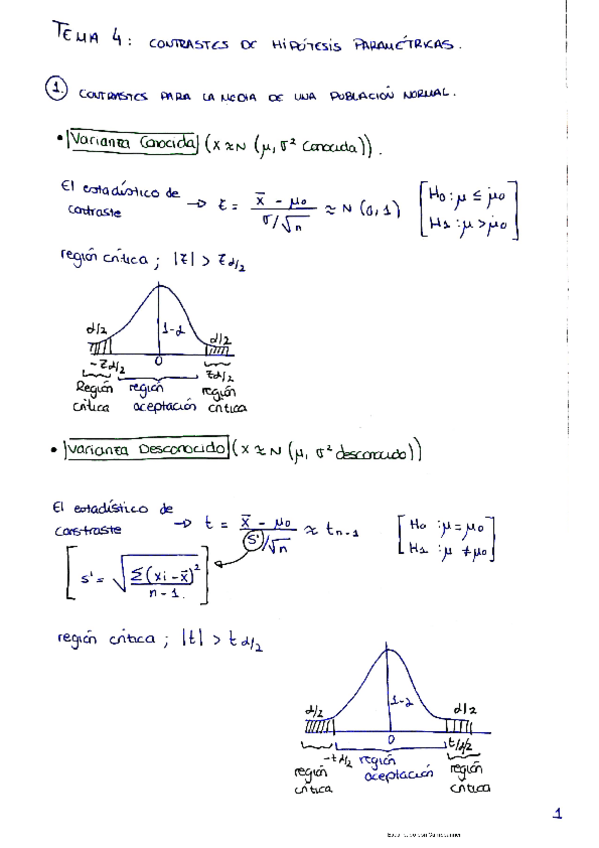 TEMA 4: CONTRASTES DE HIPÓTESIS PARAMÉTRICAS.
1. CONTRASTES PARA LA MEDIA DE UNA POBLACIÓN NORMAL.
• Varianza Conocida (X ≈ N (μ, σ² conocida)).
El estadístico de contraste → z = (x̄ - μ₀) / (σ/√n) ≈ N (0,1) [H₀: μ ≤ μ₀
H₁: μ > μ₀]
región crítica ; |z| > z α/2
α/2 1-α α/2
-z α/2 0 z α/2
Región crítica región aceptación región crítica
• Varianza Desconocida (X ≈ N (μ, σ² desconocida))
El estadístico de constraste → t = (x̄ - μ₀) / (s'/√n) ≈ t n-1 [H₀: μ = μ₀
H₁: μ ≠ μ₀]
[s' = √(Σ(xi - x̄)² / n-1.)]
región crítica ; |t| > t α/2
α/2 1-α α/2
-t α/2 0 t α/2
región crítica región aceptación región crítica
1